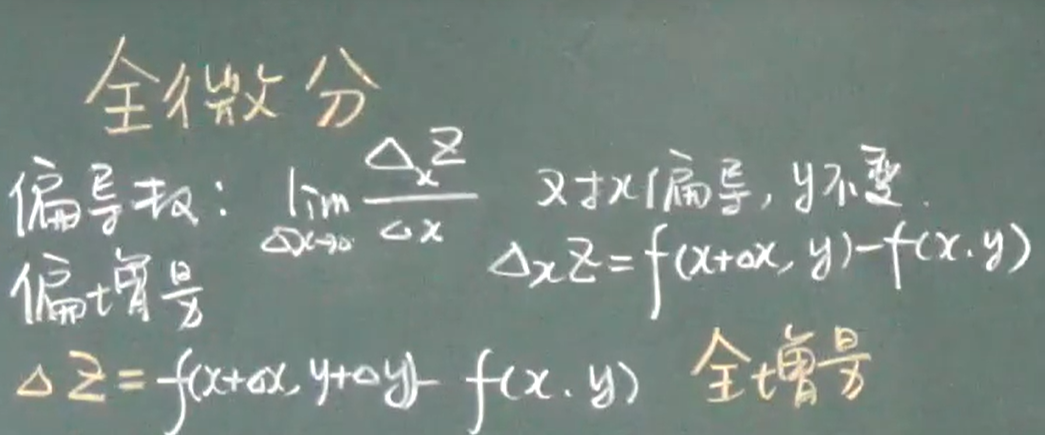 全微分
偏导数: lim Δx→0 ΔxZ/Δx 对x偏导, y不变.
偏增量 ΔxZ=f(x+Δx, y)-f(x.y)
ΔZ=f(x+Δx, y+Δy)- f(x.y) 全增量